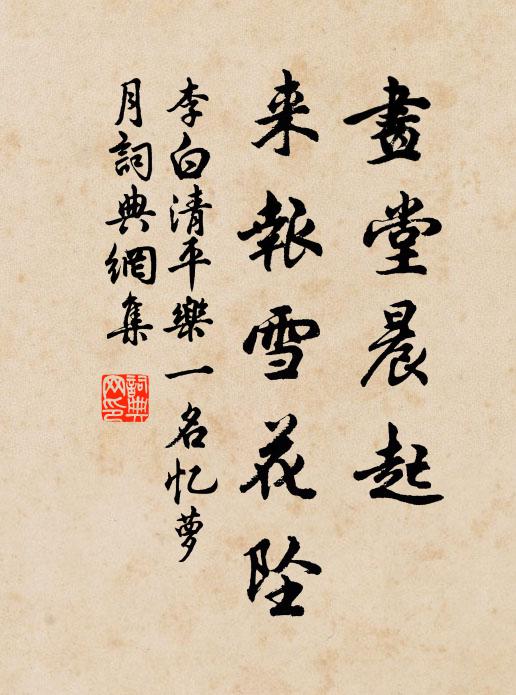 畫堂晨起
来報雪花墜
李白清平樂一名忆夢
月詞典網集
詞典
网印